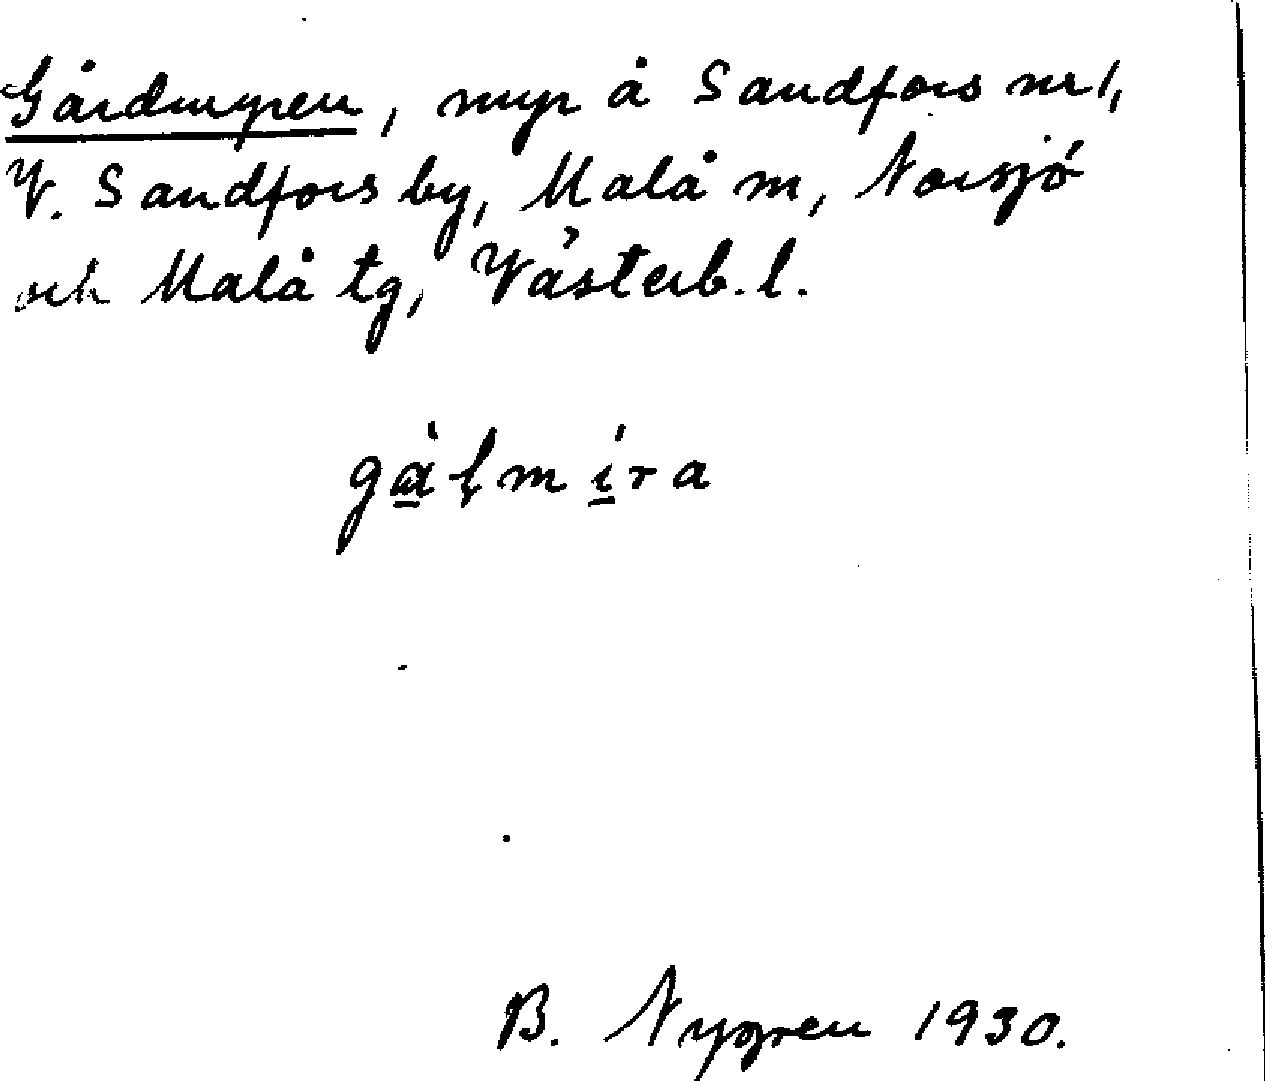 Gårdmyren, myr å Sandfors nr 1,
V. Sandfors by, Malå m, Norsjö
och Malå tg, Västerb. l.
gàḷmíra
B. Nygren 1930.